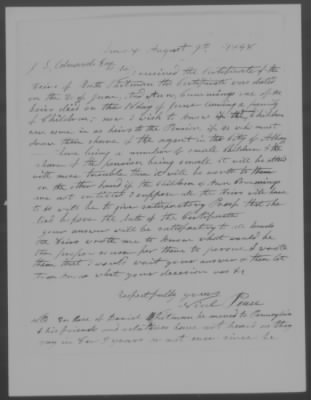 August 9th 1848
J. L. Edwards Esq
received the Certificate of the
Heirs of Ruth Whitman the Certificate was dated
on the 2 of June, Ann Cummings one of the
heirs died on the 14 day of June leaving a family
of Children; now I wish to know if the Children
can come in as heirs to the Pension, if so who must
draw their share of the agent in the City of Albany
being a number of small Children & the
share of the pension being small it will be attended
with more trouble than it will be worth to them
on the other hand if the Children of Ann Cummings
are not entitled I suppose the Heirs will have
to give satisfactory Proof that she
died the date of the Certificate
your answer will be satisfactory to all
the Heirs wants me to know what would be
the proper course for them to pursue I wrote
them that I would wait your answer & then let
them know what your decision was &c
respectfully yours
Pease
of Daniel Whitman he moved to Pennsylvania
& his friends and relatives have not heard as they
say in 8 or 9 years or not once since he